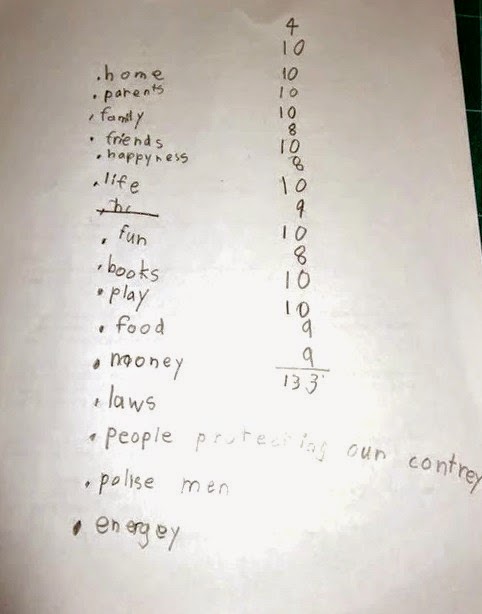 .home
.parents
.family
.friends
.happyness
.life
.fun
.books
.play
.food
.mooney
.laws
.people protecting our contrey
.polise men
.energey
4
10
10
10
10
8
10
8
10
9
10
8
10
10
9
9
133